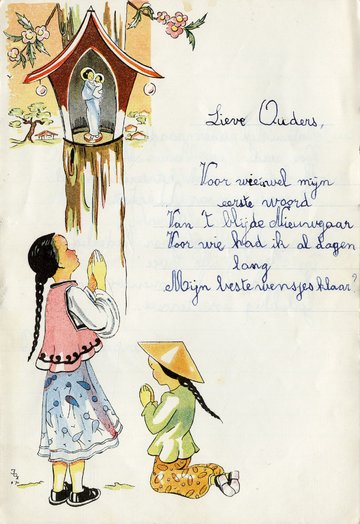 Lieve Ouders,
Voor wie wel mijn
eerste woord
Van 't blijde Nieuwjaar
Voor wie had ik al dagen
lang
Mijn beste wensjes klaar?